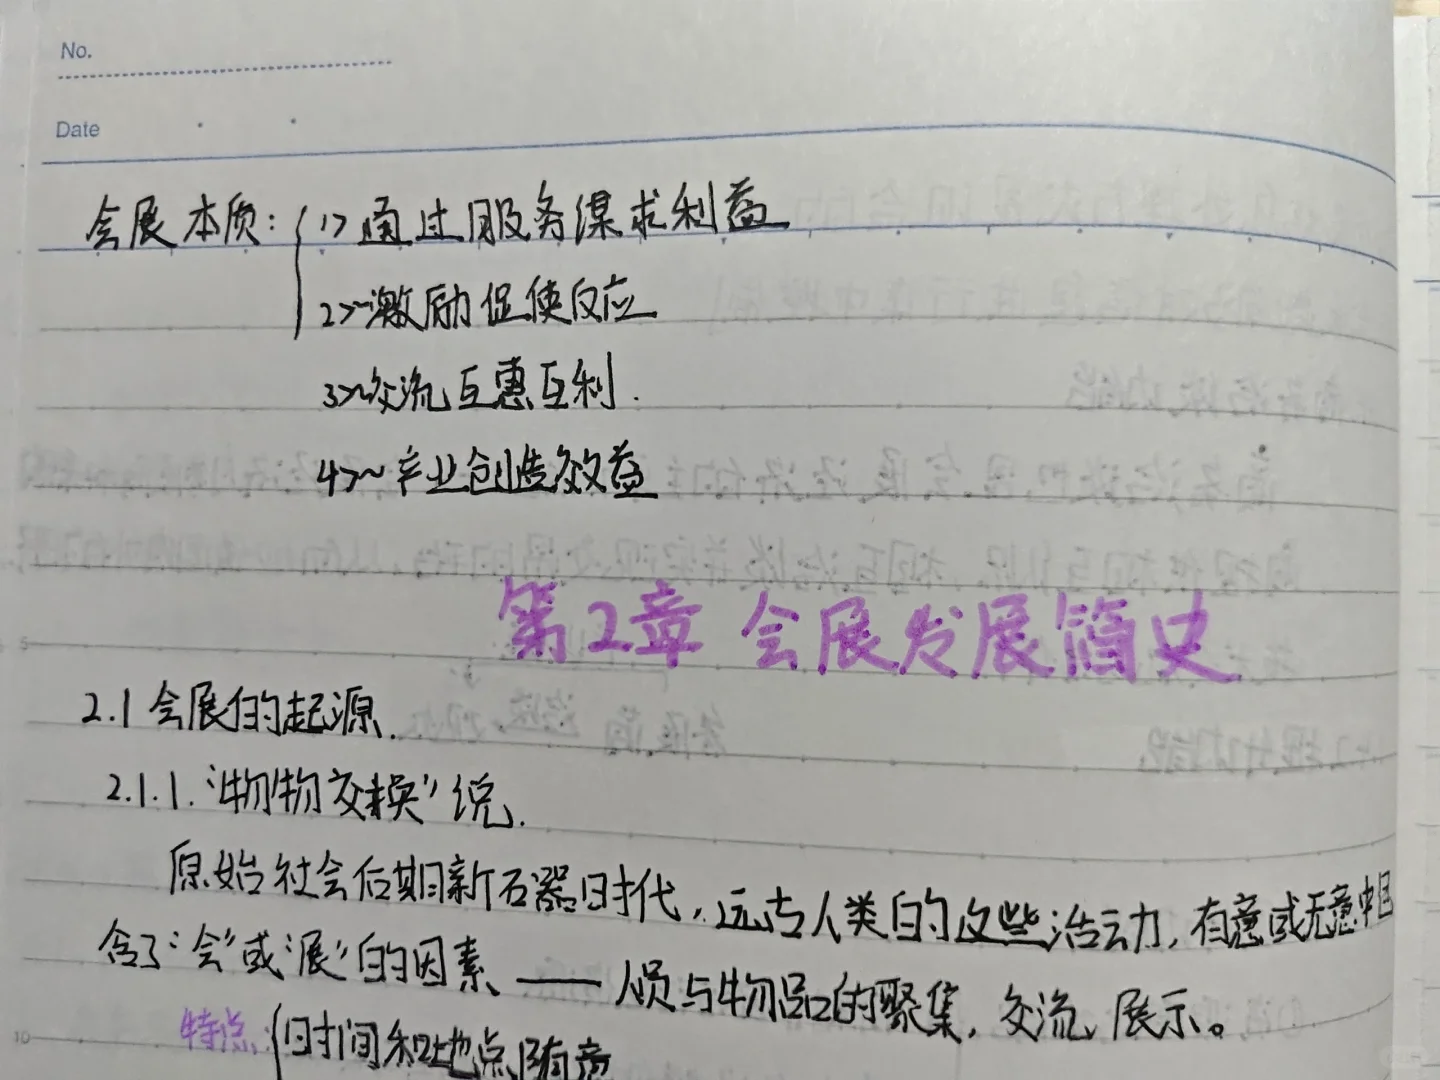 No.
Date
会展本质：1> 通过服务谋求利益
2>~激励促使反应
3>~交流互惠互利.
4>~产业创造效益
第2章 会展发展简史
2.1 会展的起源.
2.1.1.“物物交换”说.
原始社会后期新石器时代，远古人类的这些活动，有意或无意中包
含了“会”或“展”的因素——人员与物品的聚集，交流，展示。
特点：时间和地点随意
5
10